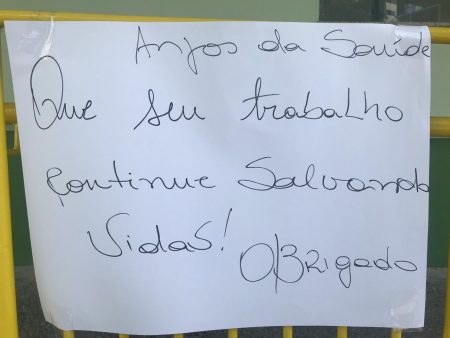 Anjos da Saúde
Que seu trabalho
continue Salvando
Vidas!
OBRigado